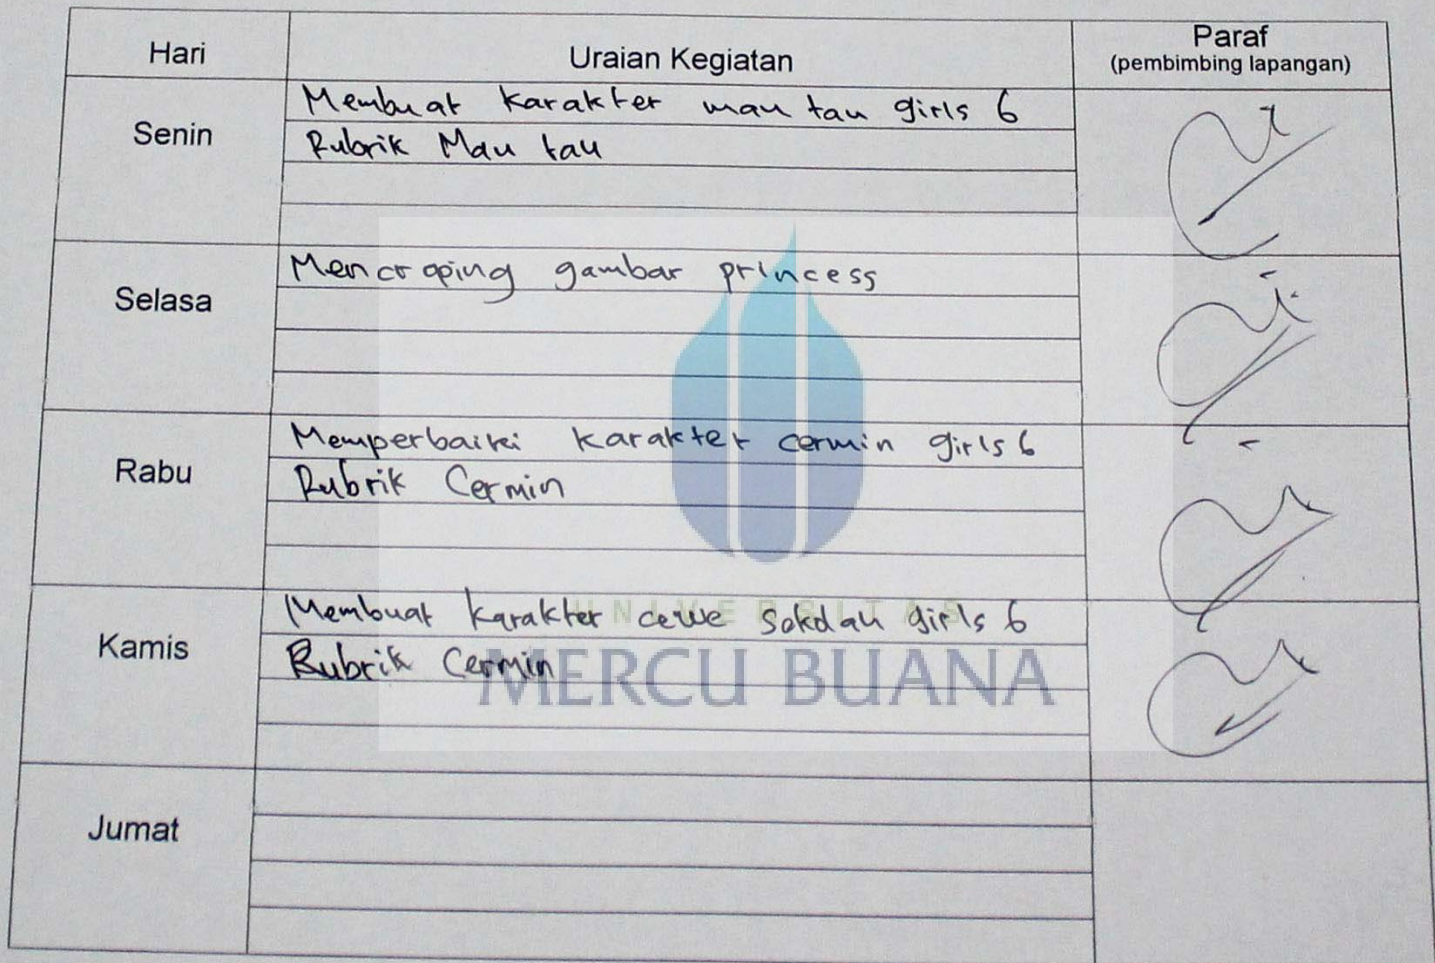 Hari
Uraian Kegiatan
Paraf
(pembimbing lapangan)
Senin
Membuat karakter mau tau girls 6
Rubrik Mau tau
Selasa
Mencroping gambar princess
Rabu
Memperbaiki karakter cermin girls 6
Rubrik Cermin
Kamis
Membuat karakter cewe sokdau girls 6
Rubrik Cermin
UNIVERSITAS
MERCU BUANA
Jumat